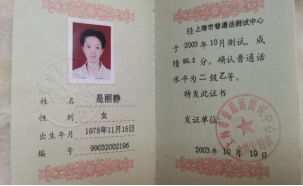 姓 名 是丽静
性 别 女
出生年月 1975年11月15日
编 号 99032002196
经上海市普通话测试中心
于2003年10月测试，成
绩86.2分。确认普通话
水平为二级乙等。
特发此证书
发证单位：
2003年10月19日